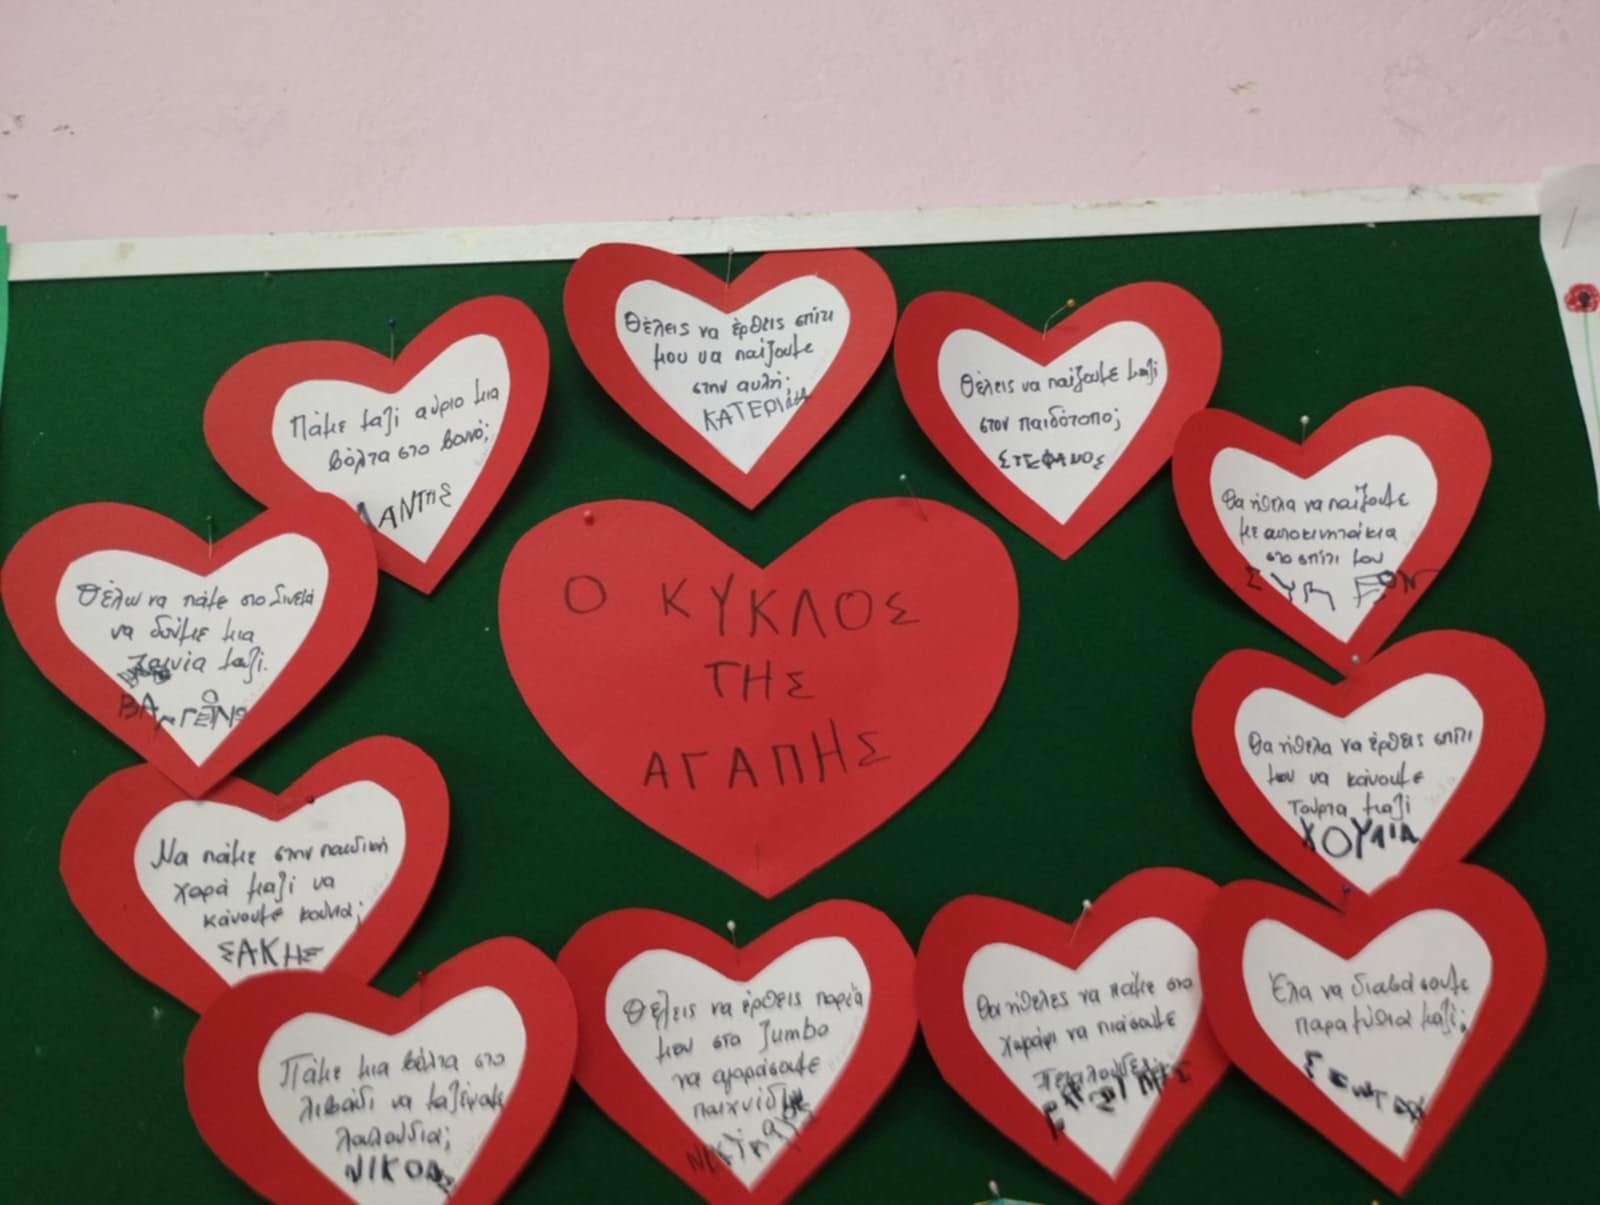 Θέλεις να έρθεις σπίτι
μου να παίζουμε
στην αυλή;
ΚΑΤΕΡΙΝΑ
Θέλεις να παίζουμε μαζί
στον παιδότοπο;
ΣΤΕΦΑΝΟΣ
Θα ήθελα να παίζουμε
με αυτοκινητάκια
στο σπίτι μου
ΣΥΜΕΟΝ
Θα ήθελα να έρθεις σπίτι
μου να κάνουμε
τούρτα μαζί
ΧΟΥΛΙΑ
Έλα να διαβάσουμε
παραμύθια μαζί;
Θα ήθελες να πάμε στο
χωράφι να πιάσουμε
Θέλεις να έρθεις παρέα
μου στο Jumbo
να αγοράσουμε
Πάμε μια βόλτα στο
λιβάδι να μαζέψουμε
λουλούδια;
ΝΙΚΟΛ
Να πάμε στην παιδική
χαρά μαζί να
κάνουμε κούνια;
ΣΑΚΗΣ
Θέλω να πάμε στο Σινεμά
να δούμε μια
ταινία μαζί.
Πάμε μαζί αύριο μια
βόλτα στο βουνό;
ΛΑΝΤΗΣ
Ο ΚΥΚΛΟΣ
ΤΗΣ
ΑΓΑΠΗΣ